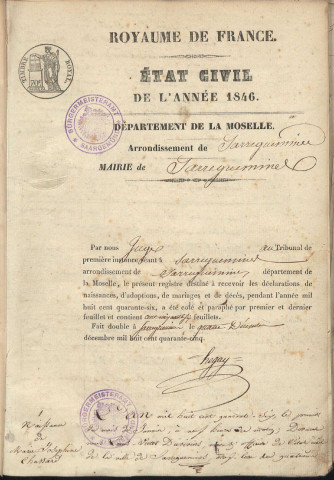 TIMBRE ROYAL
ROYAUME DE FRANCE.
ÉTAT CIVIL
DE L'ANNÉE 1846.
BÜRGERMEISTERAMT SAARGEMÜND
DÉPARTEMENT DE LA MOSELLE.
Arrondissement de Sarreguemines
MAIRIE de Sarreguemines
Par nous Juge au Tribunal de
première instance séant à Sarreguemines
arrondissement de Sarreguemines, département de
la Moselle, le présent registre destiné à recevoir les déclarations de
naissances, d'adoptions, de mariages et de décès, pendant l'année mil
huit cent quarante-six, a été coté et paraphé par premier et dernier
feuillet et contient feuillets.
Fait double à Sarreguemines le quatre Décembre
décembre mil huit cent quarante-cinq.
BÜRGERMEISTERAMT
1
Naissance
de
Marie Joséphine
L'an mil huit cent quarante-six, le premier
du mois de Janvier, à neuf heures du matin, Devant
de la ville de Sarreguemines